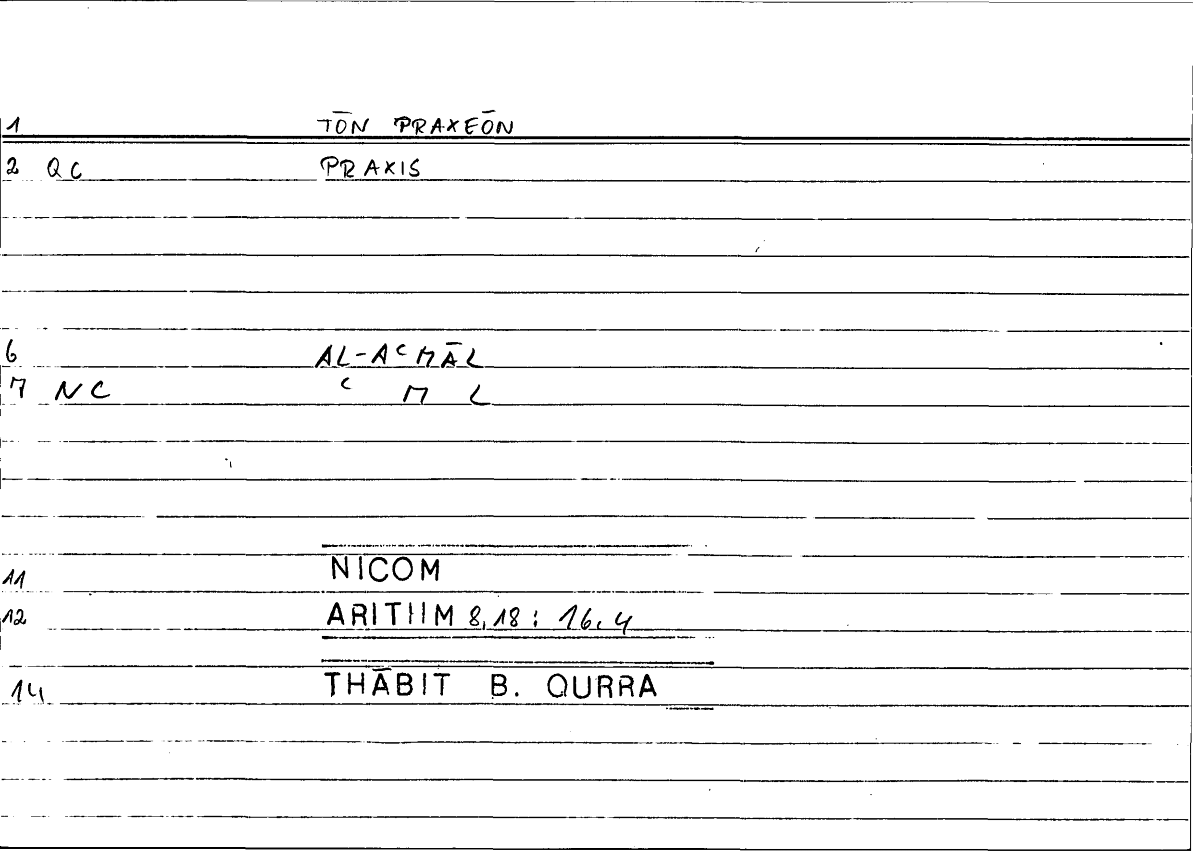 1 TŌN PRAXEŌN
2 QC PRAXIS
6 AL-AᶜMĀL
7 NC ᶜ M L
11 NICOM
12 ARITHM 8,18 : 16,4
14 THĀBIT B. QURRA